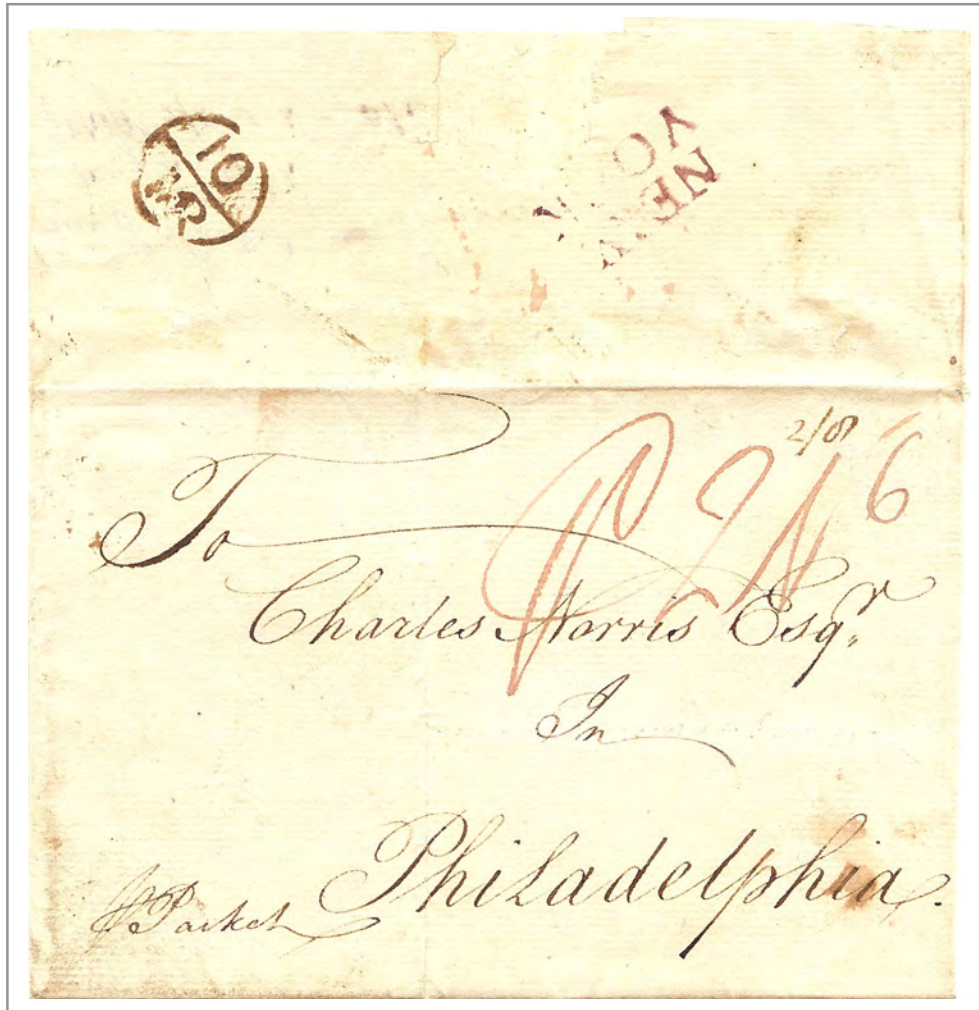 10
NEW
YO
2/8
6
To
Charles Norris Esqr.
In
Philadelphia.
Packet